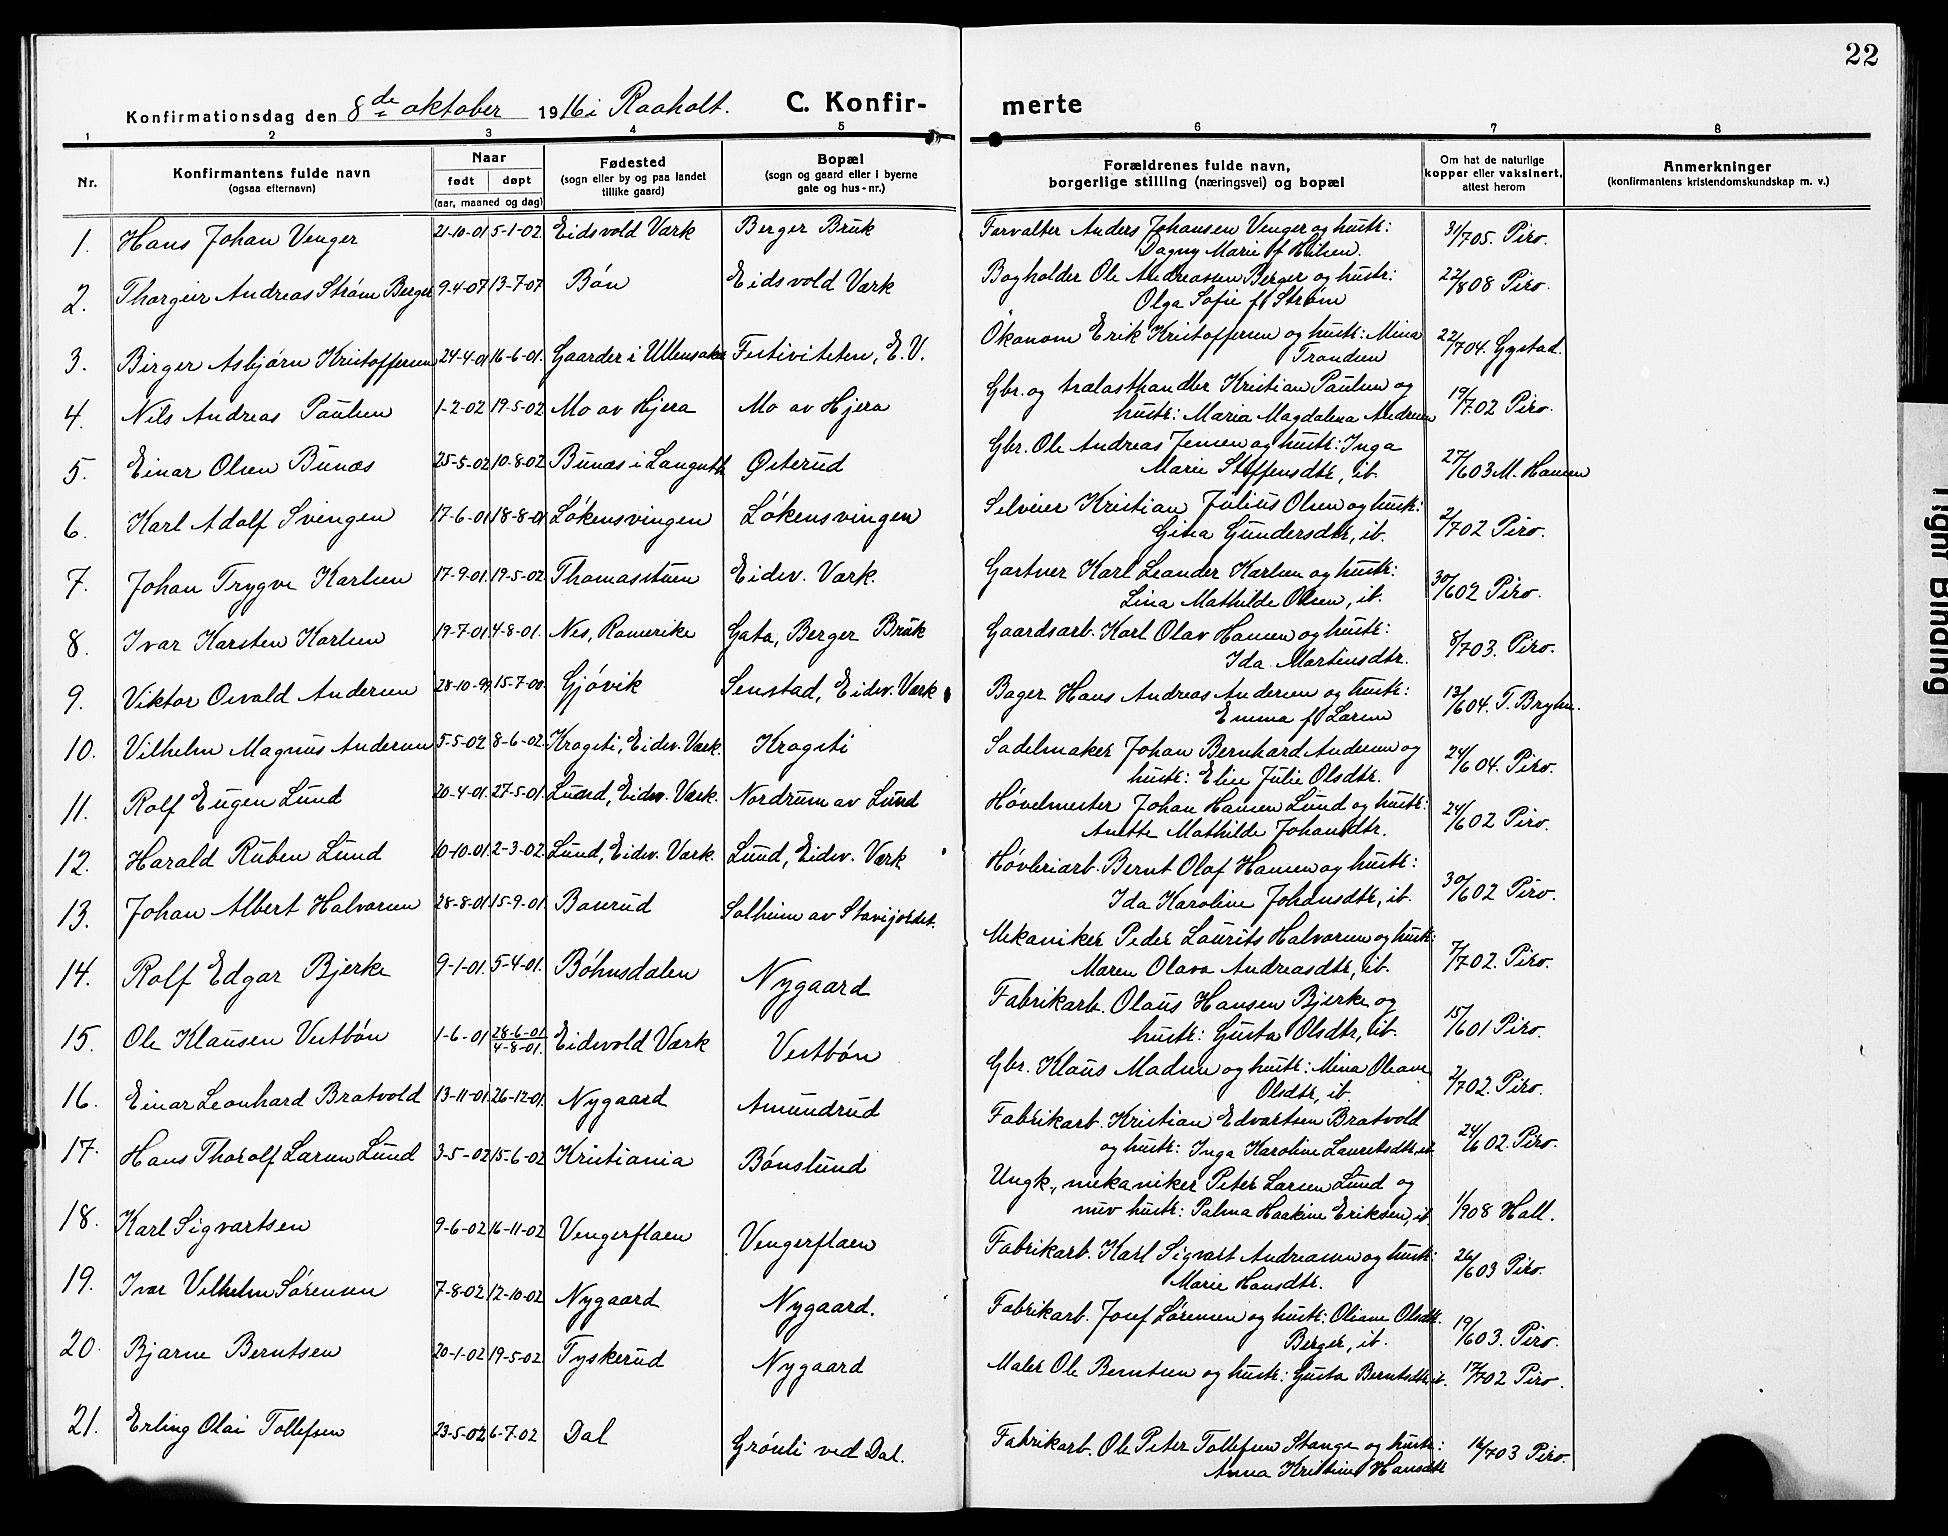 22
Konfirmationsdag den 8de oktober 1916 i Raaholt. C. Konfir-merte
1 2 3 4 5 6 7 8
Nr. Konfirmantens fulde navn (ogsaa efternavn) Naar født døpt (aar, maaned og dag) Fødested (sogn eller by og paa landet tillike gaard) Bopæl (sogn og gaard eller i byerne gate og hus-nr.) Forældrenes fulde navn, borgerlige stilling (næringsvei) og bopæl Om hat de naturlige kopper eller vaksinert, attest herom Anmerkninger (konfirmantens kristendomskundskap m. v.)
1. Hans Johan Venger 21-10-01 5-1-02 Eidsvold Værk Berger Bruk Forvalter Anders Johansen Venger og hustr: 31/7 05. Piro.
Dagny Marie f
2. Thorgeir Andreas Strøm Berger 9-4-07 13-7-07 Bøn Eidsvold Værk Bogholder Ole Andreassen Berger og hustr: 22/8 08 Piro.
Olga Sofie f. Strøm
3. Birger Asbjørn Kristoffersen 24-4-01 16-6-01. Gaarder i Ullensaker Festiviteten, E.V. Økonom Erik Kristoffersen og hustr: Mina 22/7 04. Gystad.
Trondsen
4. Nils Andreas Paulsen 1-2-02 19-5-02 Mo av Hjera Mo av Hjera Gbr. og trælasthandler Kristian Paulsen og 19/7 02 Piro.
hustr: Maria Magdalena Andersen
5. Einar Olsen Bunæs 25-5-02 10-8-02 Bunæs i Langseth Østerud Gbr. Ole Andreas Jensen og hustr: Inga 27/6 03 M. Hansen
Marie Steffensdtr, ib.
6. Karl Adolf Svingen 17-6-01 18-8-01 Løkensvingen Løkensvingen Selveier Kristian Julius Olsen og hustr: 2/7 02 Piro.
Gina Gundersdtr, ib.
7. Johan Trygve Karlsen 17-9-01. 19-5-02 Thomasstuen Eidsv. Værk. Gartner Karl Leander Karlsen og hustr: 30/6 02 Piro.
Lina Mathilde Olsen, ib.
8. Ivar Karsten Karlsen 19-7-01 4-8-01. Nes, Romerike Gata, Berger Bruk Gaardsarb. Karl Olav Hansen og hustr: 8/7 03. Piro.
Ida Martinsdtr.
9. Viktor Osvald Andersen 28-10-99 15-7-00. Gjøvik Senstad, Eidsv. Værk Bager Hans Andreas Andersen og hustr: 13/6 04. T. Bryhn.
Emma f. Larsen
10. Vilhelm Magnus Andersen 5-5-02 8-6-02. Krogsti, Eidsv. Værk. Krogsti Sadelmaker Johan Bernhard Andersen og 24/6 04. Piro.
hustr: Elise Julie Olsdtr.
11. Rolf Eugen Lund 20-4-01. 27-5-01. Lund, Eidsv. Værk. Nordrum av Lund Høvelmester Johan Hansen Lund og hustr: 24/6 02 Piro.
Anette Mathilde Johansdtr.
12. Harald Ruben Lund 10-10-01. 2-3-02 Lund, Eidsv. Værk. Lund, Eidsv. Værk Høvleriarb. Bernt Olaf Hansen og hustr: 30/6 02 Piro.
Ida Karoline Johansdtr, ib.
13. Johan Albert Halvorsen 28-8-01 15-9-01 Baserud Solheim av Stavijordet. Mekaniker Peder Laurits Halvorsen og hustr: 7/7 02. Piro.
Maren Olava Andreasdtr, ib.
14. Rolf Edgar Bjerke 9-1-01. 5-4-01. Bøhnsdalen Nygaard Fabrikarb. Olaus Hansen Bjerke og 15/6 01 Piro.
hustr: Gusta Olsdtr, ib.
15. Ole Klausen Vestbøn 1-6-01 28-6-01 4-8-01. Eidsvold Værk Vestbøn Gbr. Klaus Madsen og hustr: Mina Oleane 2/7 02. Piro.
Olsdtr, ib.
16. Einar Leonhard Bratvold 13-11-01. 26-12-01. Nygaard Amundrud Fabrikarb. Kristian Edvartsen Bratvold 24/6 02. Piro.
og hustr: Inga Karoline Lauritsdtr, ib
17. Hans Thorolf Larsen Lund 3-5-02 15-6-02 Kristiania Bønslund Ungk., mekaniker Peter Larsen Lund og 1/9 08 Hall.
nuv. hustr: Palma Haakine Eriksen, ib.
18. Karl Sigvartsen 9-6-02 16-11-02 Vengerflaen Vengerflaen Fabrikarb. Karl Sigvart Andreassen og hustr: 26/6 03 Piro.
Marie Hansdtr.
19. Ivar Vilhelm Sørensen 7-8-02 12-10-02 Nygaard Nygaard. Fabrikarb. Josef Sørensen og hustr: Oliane Olsdtr. 19/6 03. Piro.
Berger, ib.
20. Bjarne Berntsen 20-1-02 19-5-02 Tyskerud Nygaard Maler Ole Berntsen og hustr: Gusta Berntsdtr, ib. 17/7 02 Piro.
21. Erling Olai Tollefsen 23-5-02 6-7-02 Dal Grønli ved Dal. Fabrikarb. Ole Peter Tollefsen Stange og hustr: 16/7 03 Piro.
Anna Kristine Hansdtr
Tight Binding